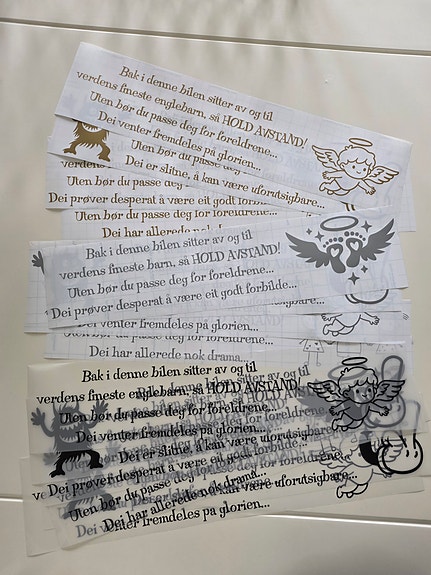 Bak i denne bilen sitter av og til
verdens fineste englebarn, så HOLD AVSTAND!
Uten bør du passe deg for foreldrene...
Dei venter fremdeles på glorien...
Uten bør du passe
Dei er slitne, å kan være uforutsigbare...
Uten bør du passe deg for foreldrene...
Dei prøver desperat å være eit godt forbilde
Uten bør du passe deg for foreldrene...
Dei har allerede nok
Bak i denne bilen sitter av og til
verdens fineste barn, så HOLD AVSTAND!
Uten bør du passe deg for foreldrene...
Dei prøver desperat å være eit godt forbilde...
Dei venter fremdeles på glorien...
Dei har allerede nok drama...
Bak i denne bilen sitter av og til
verdens fineste englebarn, så HOLD AVSTAND!
Uten bør du passe deg for foreldrene...
Dei venter fremdeles på glorien...
Dei er slitne, å kan være uforutsigbare...
Dei prøver desperat å være eit godt
Uten bør du passe deg for foreldrene...
Dei har allerede nok drama...
Dei venter fremdeles på glorien...